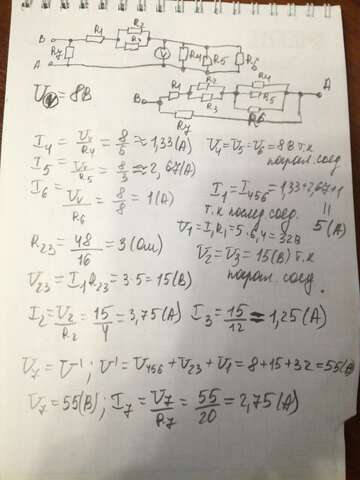 B R₁ R₂ R₃ V R₄ R₅ R₆
A R₇
U_V = 8В B R₁ R₂ R₃ R₄ R₅ R₆ A
R₇
I₄ = U_V/R₄ = 8/6 ≈ 1,33(A) U₄=U₅=U₆=8В т.к
парал. соед.
I₅ = U_V/R₅ = 8/3 ≈ 2,67(A)
I₆ = U_V/R₆ = 8/8 = 1(A) I₁=I₄₅₆=1,33+2,67+1
т.к послед. соед. = 5(A)
U₁=I₁R₁=5·6,4=32В
R₂₃ = 48/16 = 3(Ом) U₂=U₃=15(В) т.к
парал. соед.
U₂₃=I₁R₂₃=3·5=15(В)
I₂=U₂/R₂=15/4=3,75(A) I₃=15/12≈1,25(A)
U₇=U'; U'=U₄₅₆+U₂₃+U₁=8+15+32=55(В)
U₇=55(В); I₇=U₇/R₇=55/20=2,75(A)